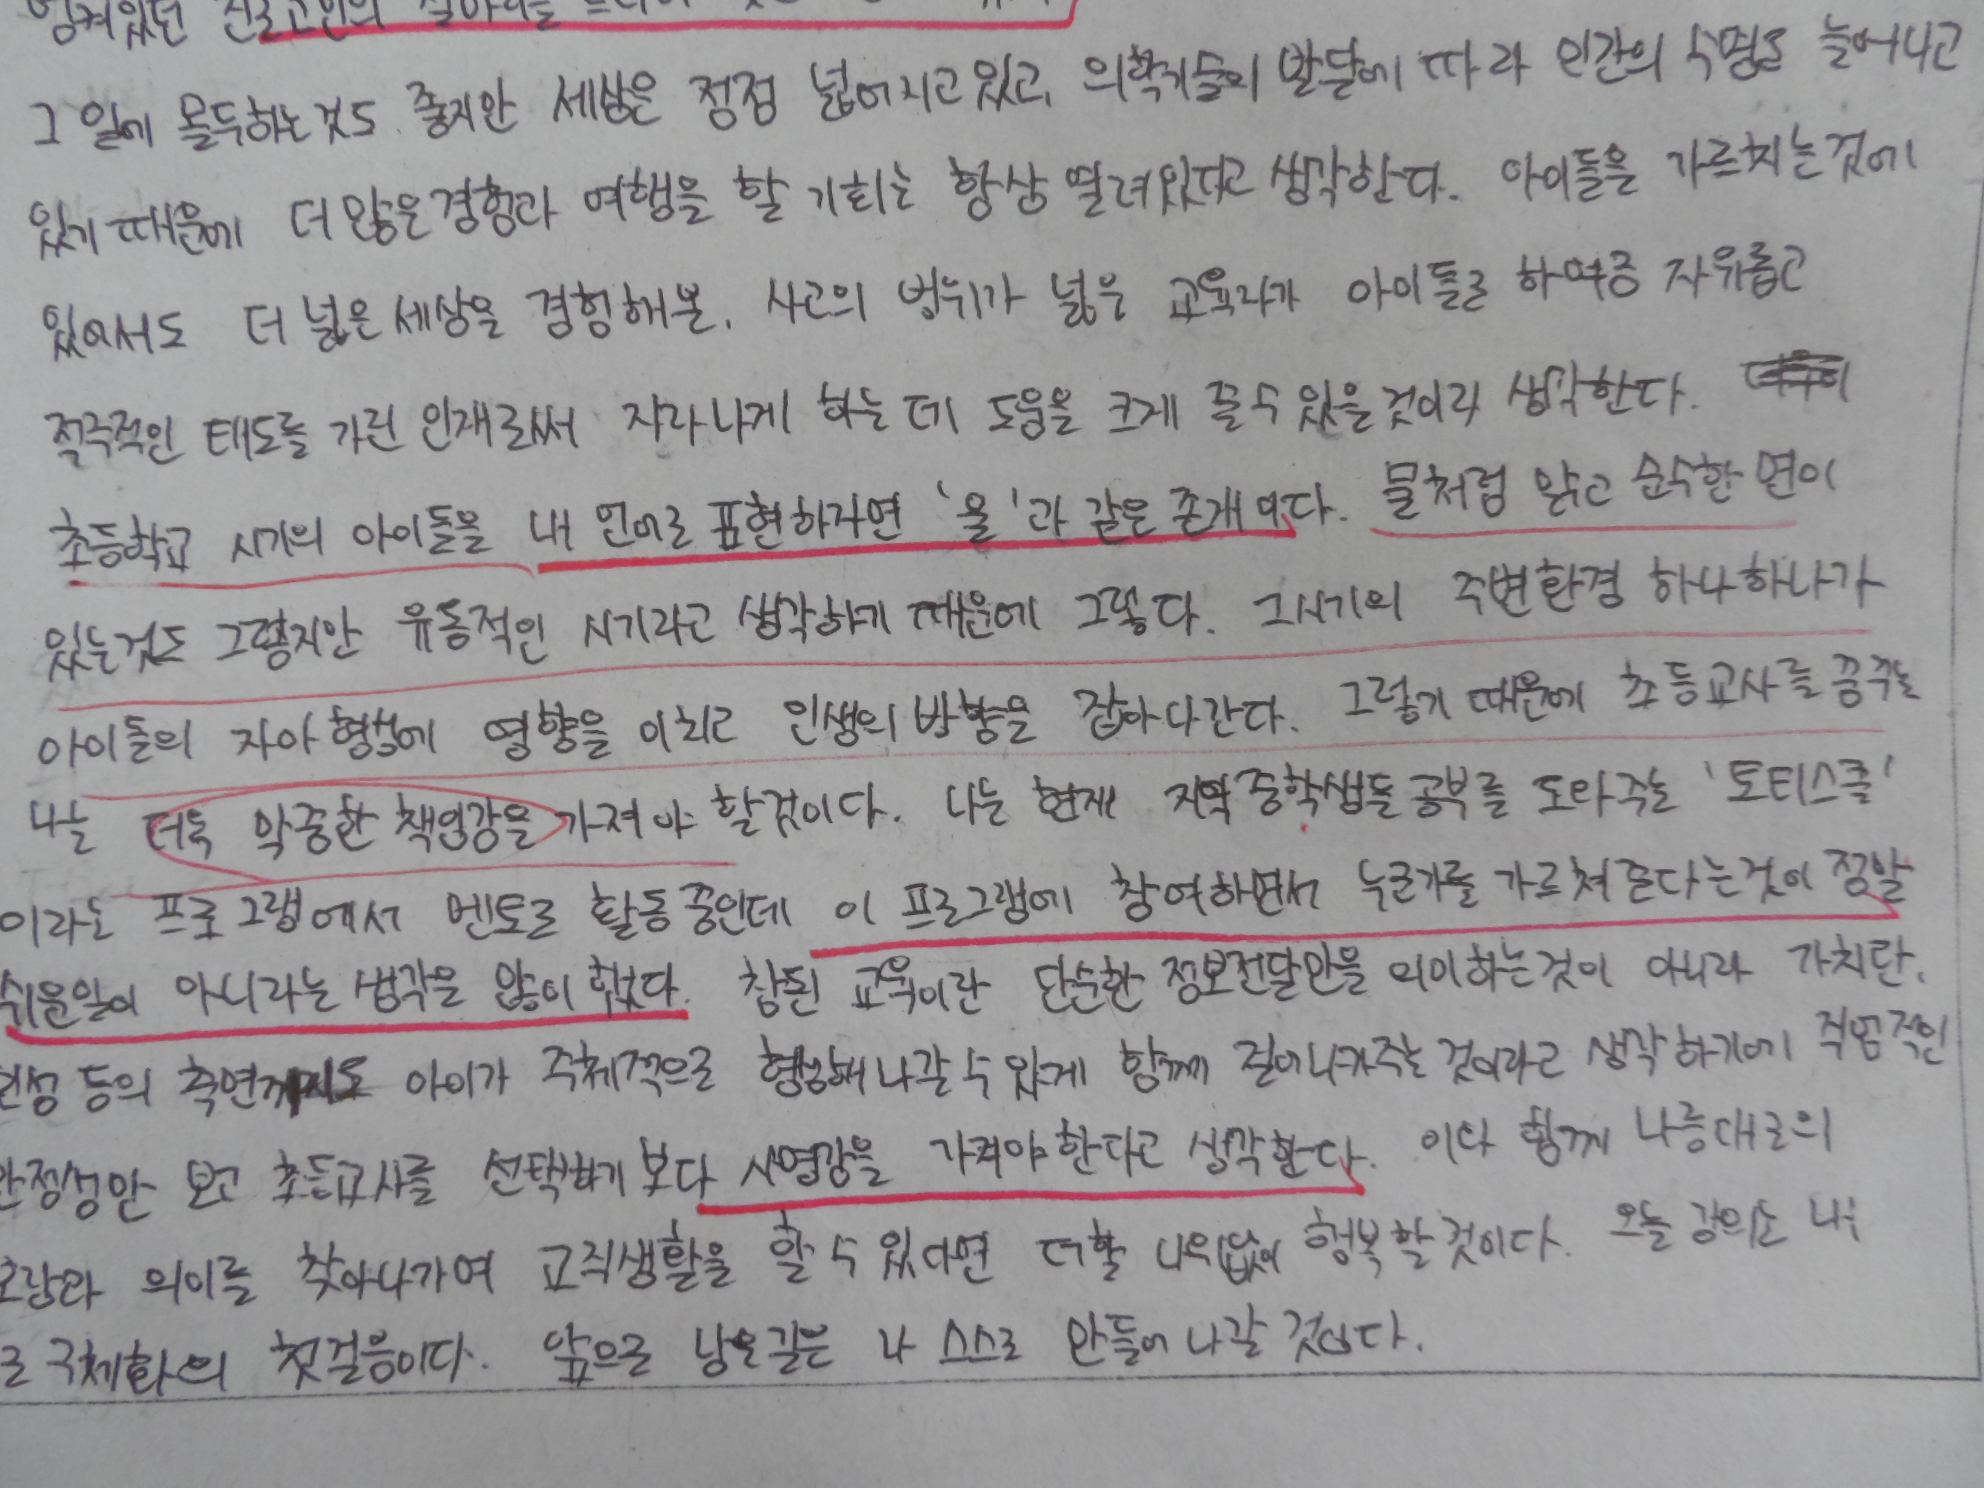 엉켜있던 진로고민의 실마리를
그 일에 몰두하는것도 좋지만 세상은 점점 넓어지고있고, 의학기술의 발달에 따라 인간의 수명도 늘어나고
있기 때문에 더 많은 경험과 여행을 할 기회는 항상 열려있다고 생각한다. 아이들을 가르치는것에
있어서도 더 넓은 세상을 경험해본, 사고의 범위가 넓은 교육자가 아이들로 하여금 자유롭고
적극적인 태도를 가진 인재로써 자라나게 하는데 도움을 크게 줄수있을것이라 생각한다.
초등학교 시기의 아이들을 내 언어로 표현하자면 '물'과 같은 존재이다. 물처럼 맑고 순수한 면이
있는것도 그렇지만 유동적인 시기라고 생각하기 때문에 그렇다. 그시기의 주변환경 하나하나가
아이들의 자아 형성에 영향을 미치고 인생의 방향을 잡아나간다. 그렇기 때문에 초등교사를 꿈꾸는
나는 더욱 막중한 책임감을 가져야 할것이다. 나는 현재 지역 중학생들 공부를 도와주는 '토티스쿨'
이라는 프로그램에서 멘토로 활동중인데 이 프로그램에 참여하면서 누군가를 가르쳐 준다는것이 정말
쉬운일이 아니라는 생각을 많이 했다. 참된 교육이란 단순한 정보전달만을 의미하는것이 아니라 가치관,
인성 등의 측면까지도 아이가 주체적으로 형성해나갈수있게 함께 걸어나가주는 것이라고 생각하기에 직업적인
안정성만 보고 초등교사를 선택하기 보다 사명감을 가져야한다고 생각한다. 이와 함께 나름대로의
보람과 의미를 찾아나가며 교직생활을 할 수 있다면 더할 나위없이 행복할것이다. 오늘 강의는 내
로 구체화의 첫걸음이다. 앞으로 남은길은 나 스스로 만들어나갈 것이다.